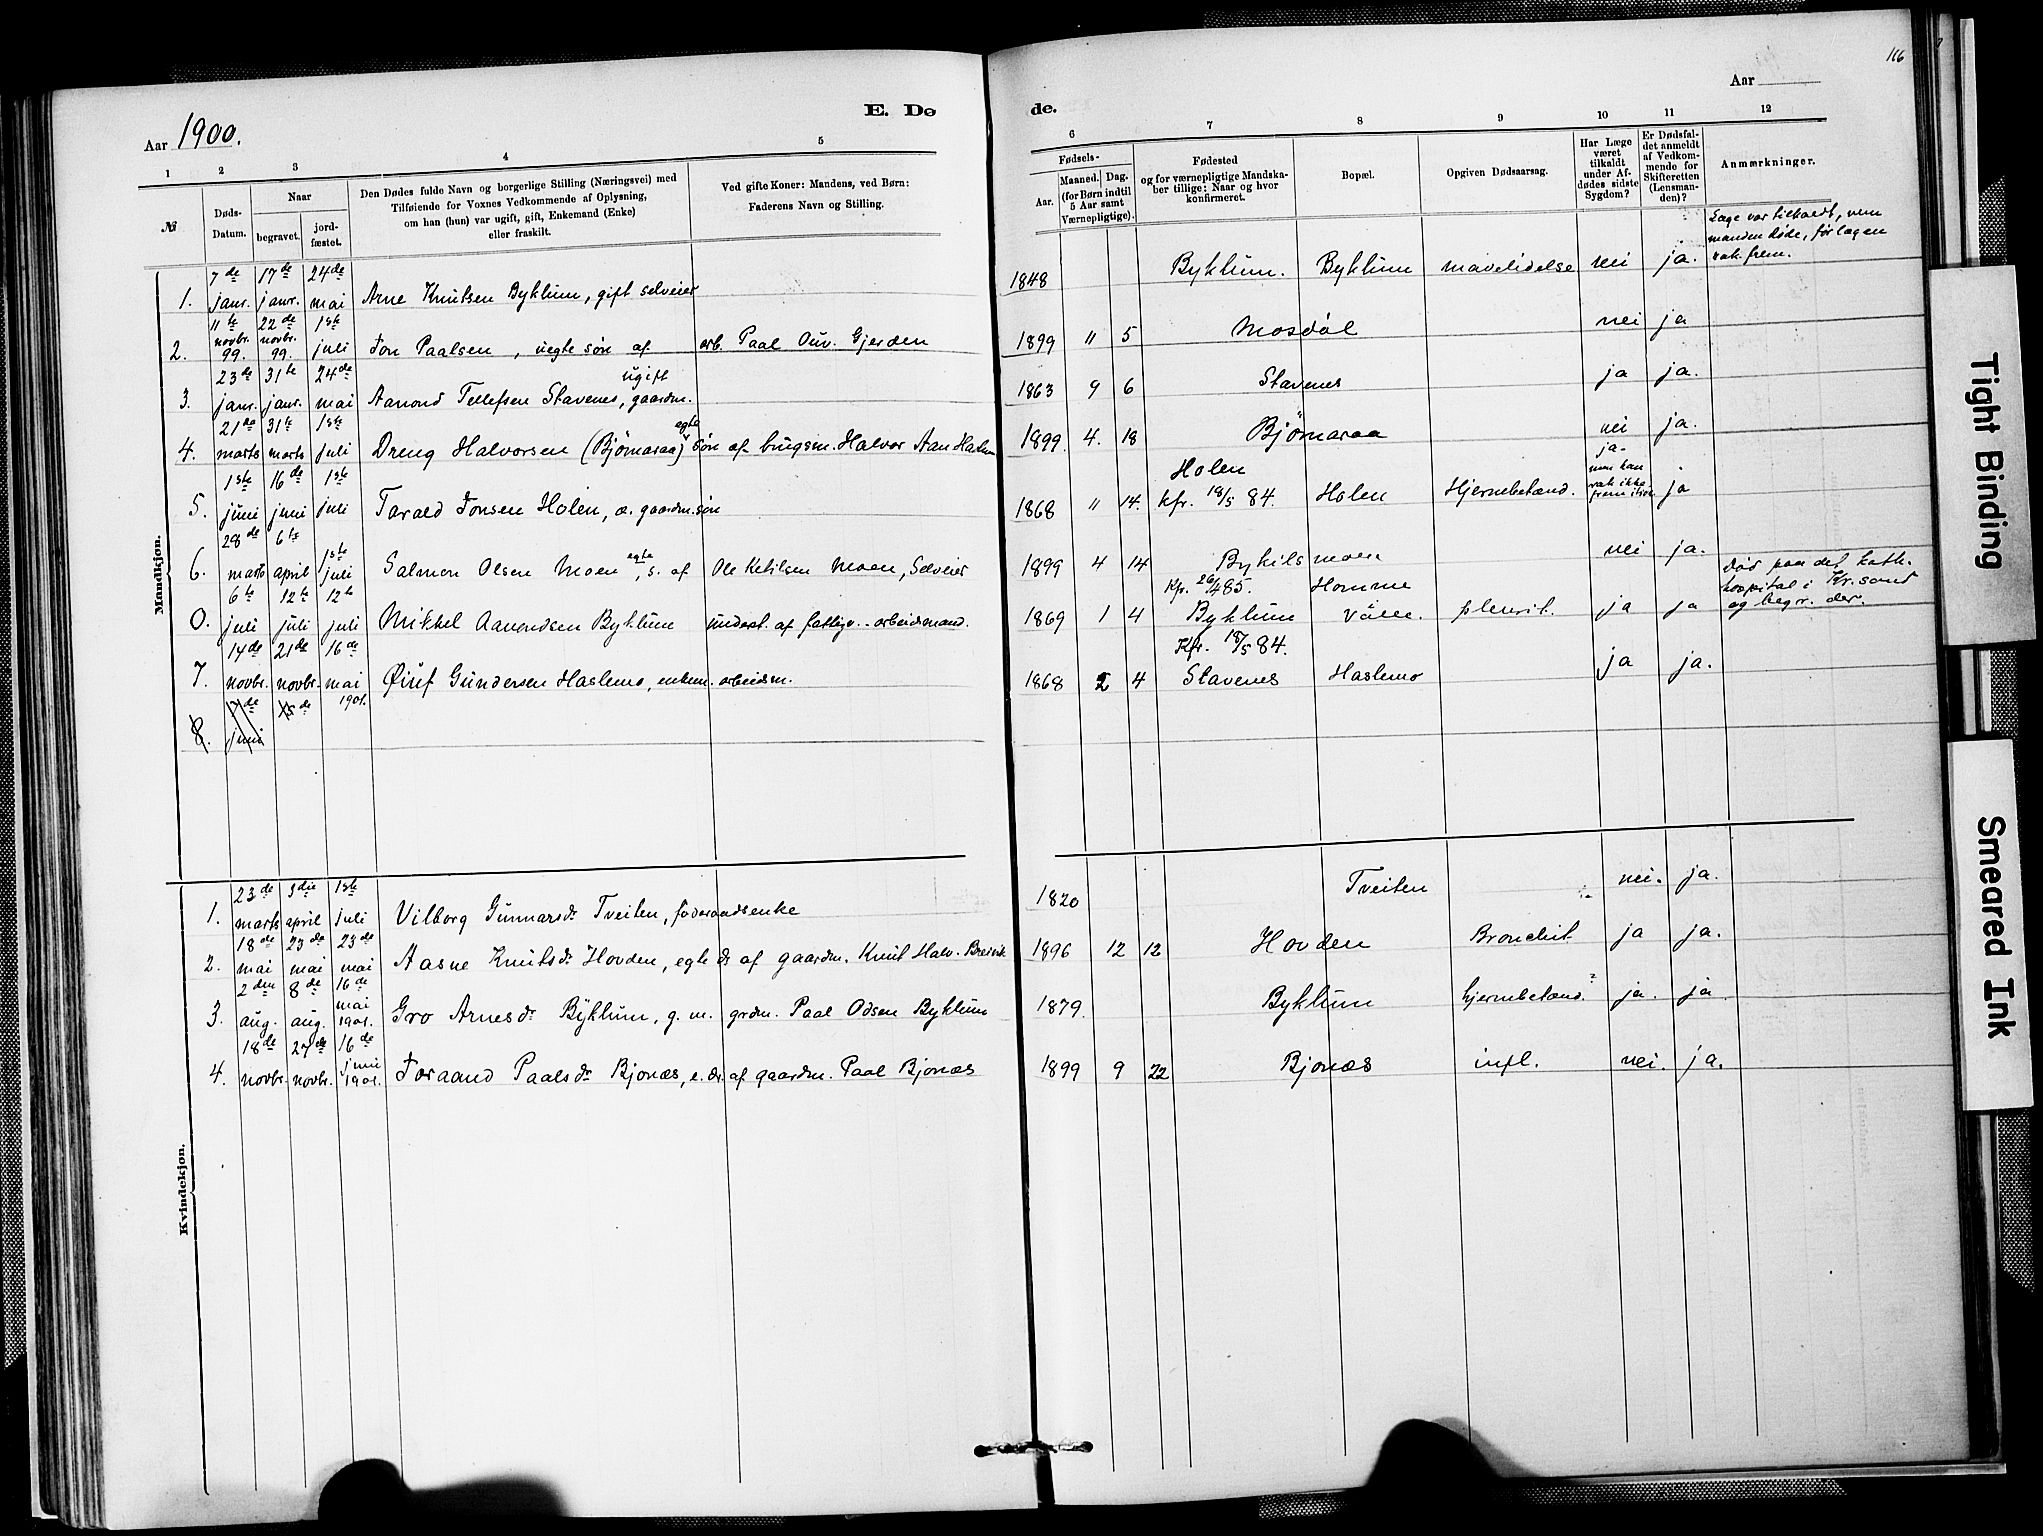 166
Aar 1900.
E. Dø
de.
Aar
1
2
3
4
5
6
7
8
9
10
11
12
№
Døds-
Datum.
Naar
begravet.
jord-
fæstet.
Den Dødes fulde Navn og borgerlige Stilling (Næringsvei) med
Tilføiende for Voxnes Vedkommende af Oplysning,
om han (hun) var ugift, gift, Enkemand (Enke)
eller fraskilt.
Ved gifte Koner: Mandens, ved Børn:
Faderens Navn og Stilling.
Fødsels-
Aar.
Maaned.
Dag.
(for Børn indtil
5 Aar samt
Værnepligtige).
Fødested
og for værnepligtige Mandska-
ber tillige: Naar og hvor
konfirmeret.
Bopæl.
Opgiven Dødsaarsag.
Har Læge
været
tilkaldt
under Af-
dødes sidste
Sygdom?
Er Dødsfal-
det anmeldt
af Vedkom-
mende for
Skifteretten
(Lensman-
den)?
Anmærkninger.
Mandkjøn.
1. 7de janr. 17de janr. 24de mai Arne Knutsen Byklum, gift selveier 1848 Byklum. Byklum mavelidelse nei ja.
Læge var tilkaldt, men
manden døde, før lægen
rak frem.
2. 11te novbr. 99. 22de novbr. 99. 1ste juli Jon Paalsen, uegte søn af arb. Paal Ouv. Gjerden 1899 11 5 Mosdøl nei ja
3. 23de janr. 31te janr. 24de mai Aanond Tellefsen Stavenes, ugift gaardm. 1863 9 6 Stavenes ja ja.
4. 21de marts 31te marts 1ste juli Dreng Halvorsen (Bjørnaraa) egte søn af brugsm. Halvor Aan 1899 4. 18 Bjørnaraa nei ja.
5. 1ste juni 16de juni 1ste juli Tarald Jonsen Holen, e. gaardm. søn 1868 11 14. Holen
kfr. 18/5 84. Holen Hjernebetænd. ja -
men han
rak ikke
frem itide ja
6. 28de marts 6te april 1ste juli Salmon Olsen Moen, egte s. af Ole Ketilsen Moen, Selveier 1899 4 14 Bykilsmoen nei ja.
0. 6te juli 12te juli 12te juli Mikkel Aanondsen Byklum underst. af fattigv. - arbeidsmand. 1869 1 4 Kfr. 26/4 85.
Byklum Homme
Våle. pleurit. ja ja
Død paa det kath.
hospital i Kr.sand
og begr. der.
7. 14de novbr. 21de novbr. 16de mai 1901. Øiuf Gundersen Haslemo, enkem. arbeidsm. 1868 2 4 Kfr. 18/5 84.
Stavenes Haslemo ja ja.
8. 7de juni 15de
Kvindekjøn.
1. 23de marts 3die april 1ste juli Vilborg Gunnarsdr Tveiten, føderaadsenke 1820 Tveiten nei. ja.
2. 18de mai 23de mai 23de mai Aasne Knutsdr Hovden, egte dr af gaardm. Knut Halv. Breivik 1896 12 12 Hovden Bronchit ja ja.
3. 2den aug. 8de aug. 16de mai 1901. Gro Arnesdr Byklum, g. m. grdm. Paal Odsen Byklum 1879. Byklum hjernebetænd.? ja. ja.
4. 18de novbr. 27de novbr. 16de juni 1901. Toraand Paalsdr Bjonæs, e. dr. af gaardm. Paal Bjonæs 1899 9 22 Bjonæs infl. nei. ja.
Tight Binding
Smeared Ink